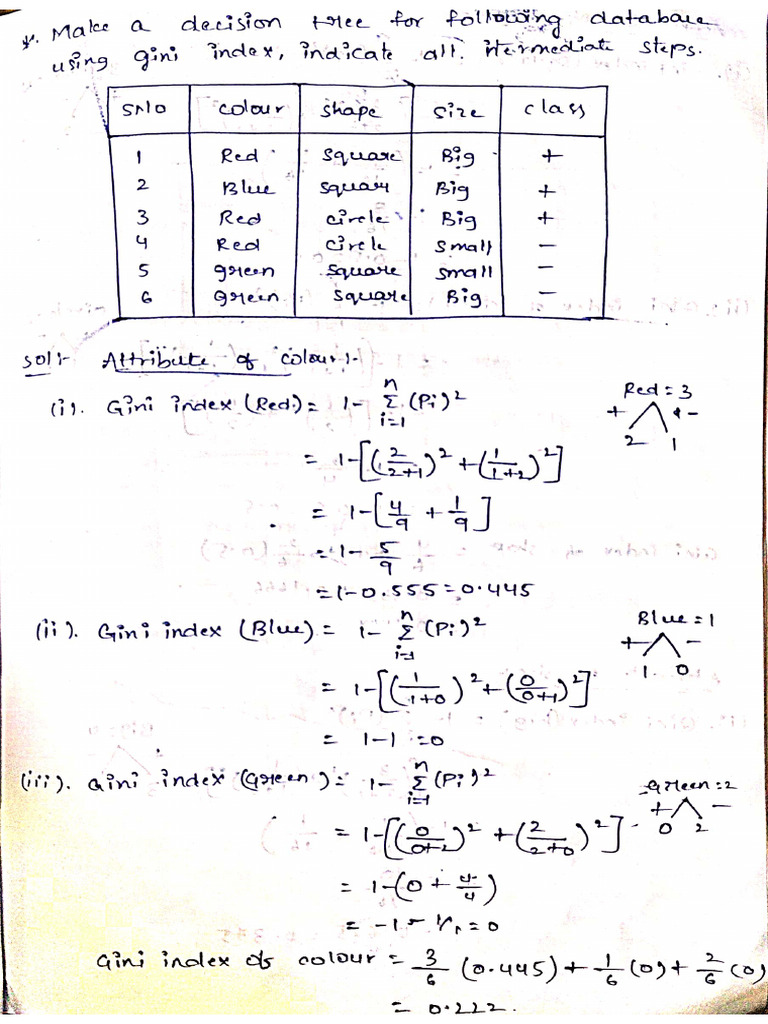 *. Make a decision tree for following database
using gini index, indicate all. itermediate steps.
SNO colour shape size class
1 Red square Big +
2 Blue square Big +
3 Red circle Big +
4 Red circle small -
5 green square small -
6 green square Big -
Sol:- Attribute of colour:-
(i). Gini index (Red) = 1- n Σ i=1 (Pi)²
Red = 3
+ -
2 1
= 1-[(2/2+1)² + (1/1+2)²]
= 1-[4/9 + 1/9]
= 1- 5/9
= 1-0.555 = 0.445
(ii). Gini index (Blue) = 1- n Σ i=1 (Pi)²
Blue = 1
+ -
1 0
= 1-[(1/1+0)² + (0/0+1)²]
= 1-1 = 0
(iii). Gini index (Green) = 1- n Σ i=1 (Pi)²
Green = 2
+ -
0 2
= 1-[(0/0+2)² + (2/2+0)²]
= 1-(0 + 4/4)
= 0
Gini index of colour = 3/6 (0.445) + 1/6 (0) + 2/6 (0)
= 0.222.